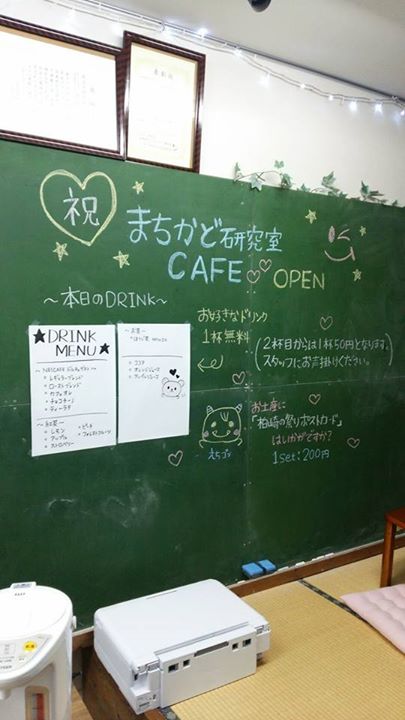 表彰状
祝
まちかど研究室
CAFE OPEN
～本日のDRINK～
★DRINK MENU★
・レギュラーブレンド
・ローストブレンド
・カフェオレ
・ティーラテ
～紅茶～
・レモン
・アップル
・ストロベリー
・ピーチ
～お茶～
・ココア
・オレンジジュース
お好きなドリンク
1杯無料
(2杯目からは1杯50円となります。
スタッフにお声掛けください。)
えちゴン
お土産に
「柏崎の祭りポストカード」
はいかがですか?
1set:200円